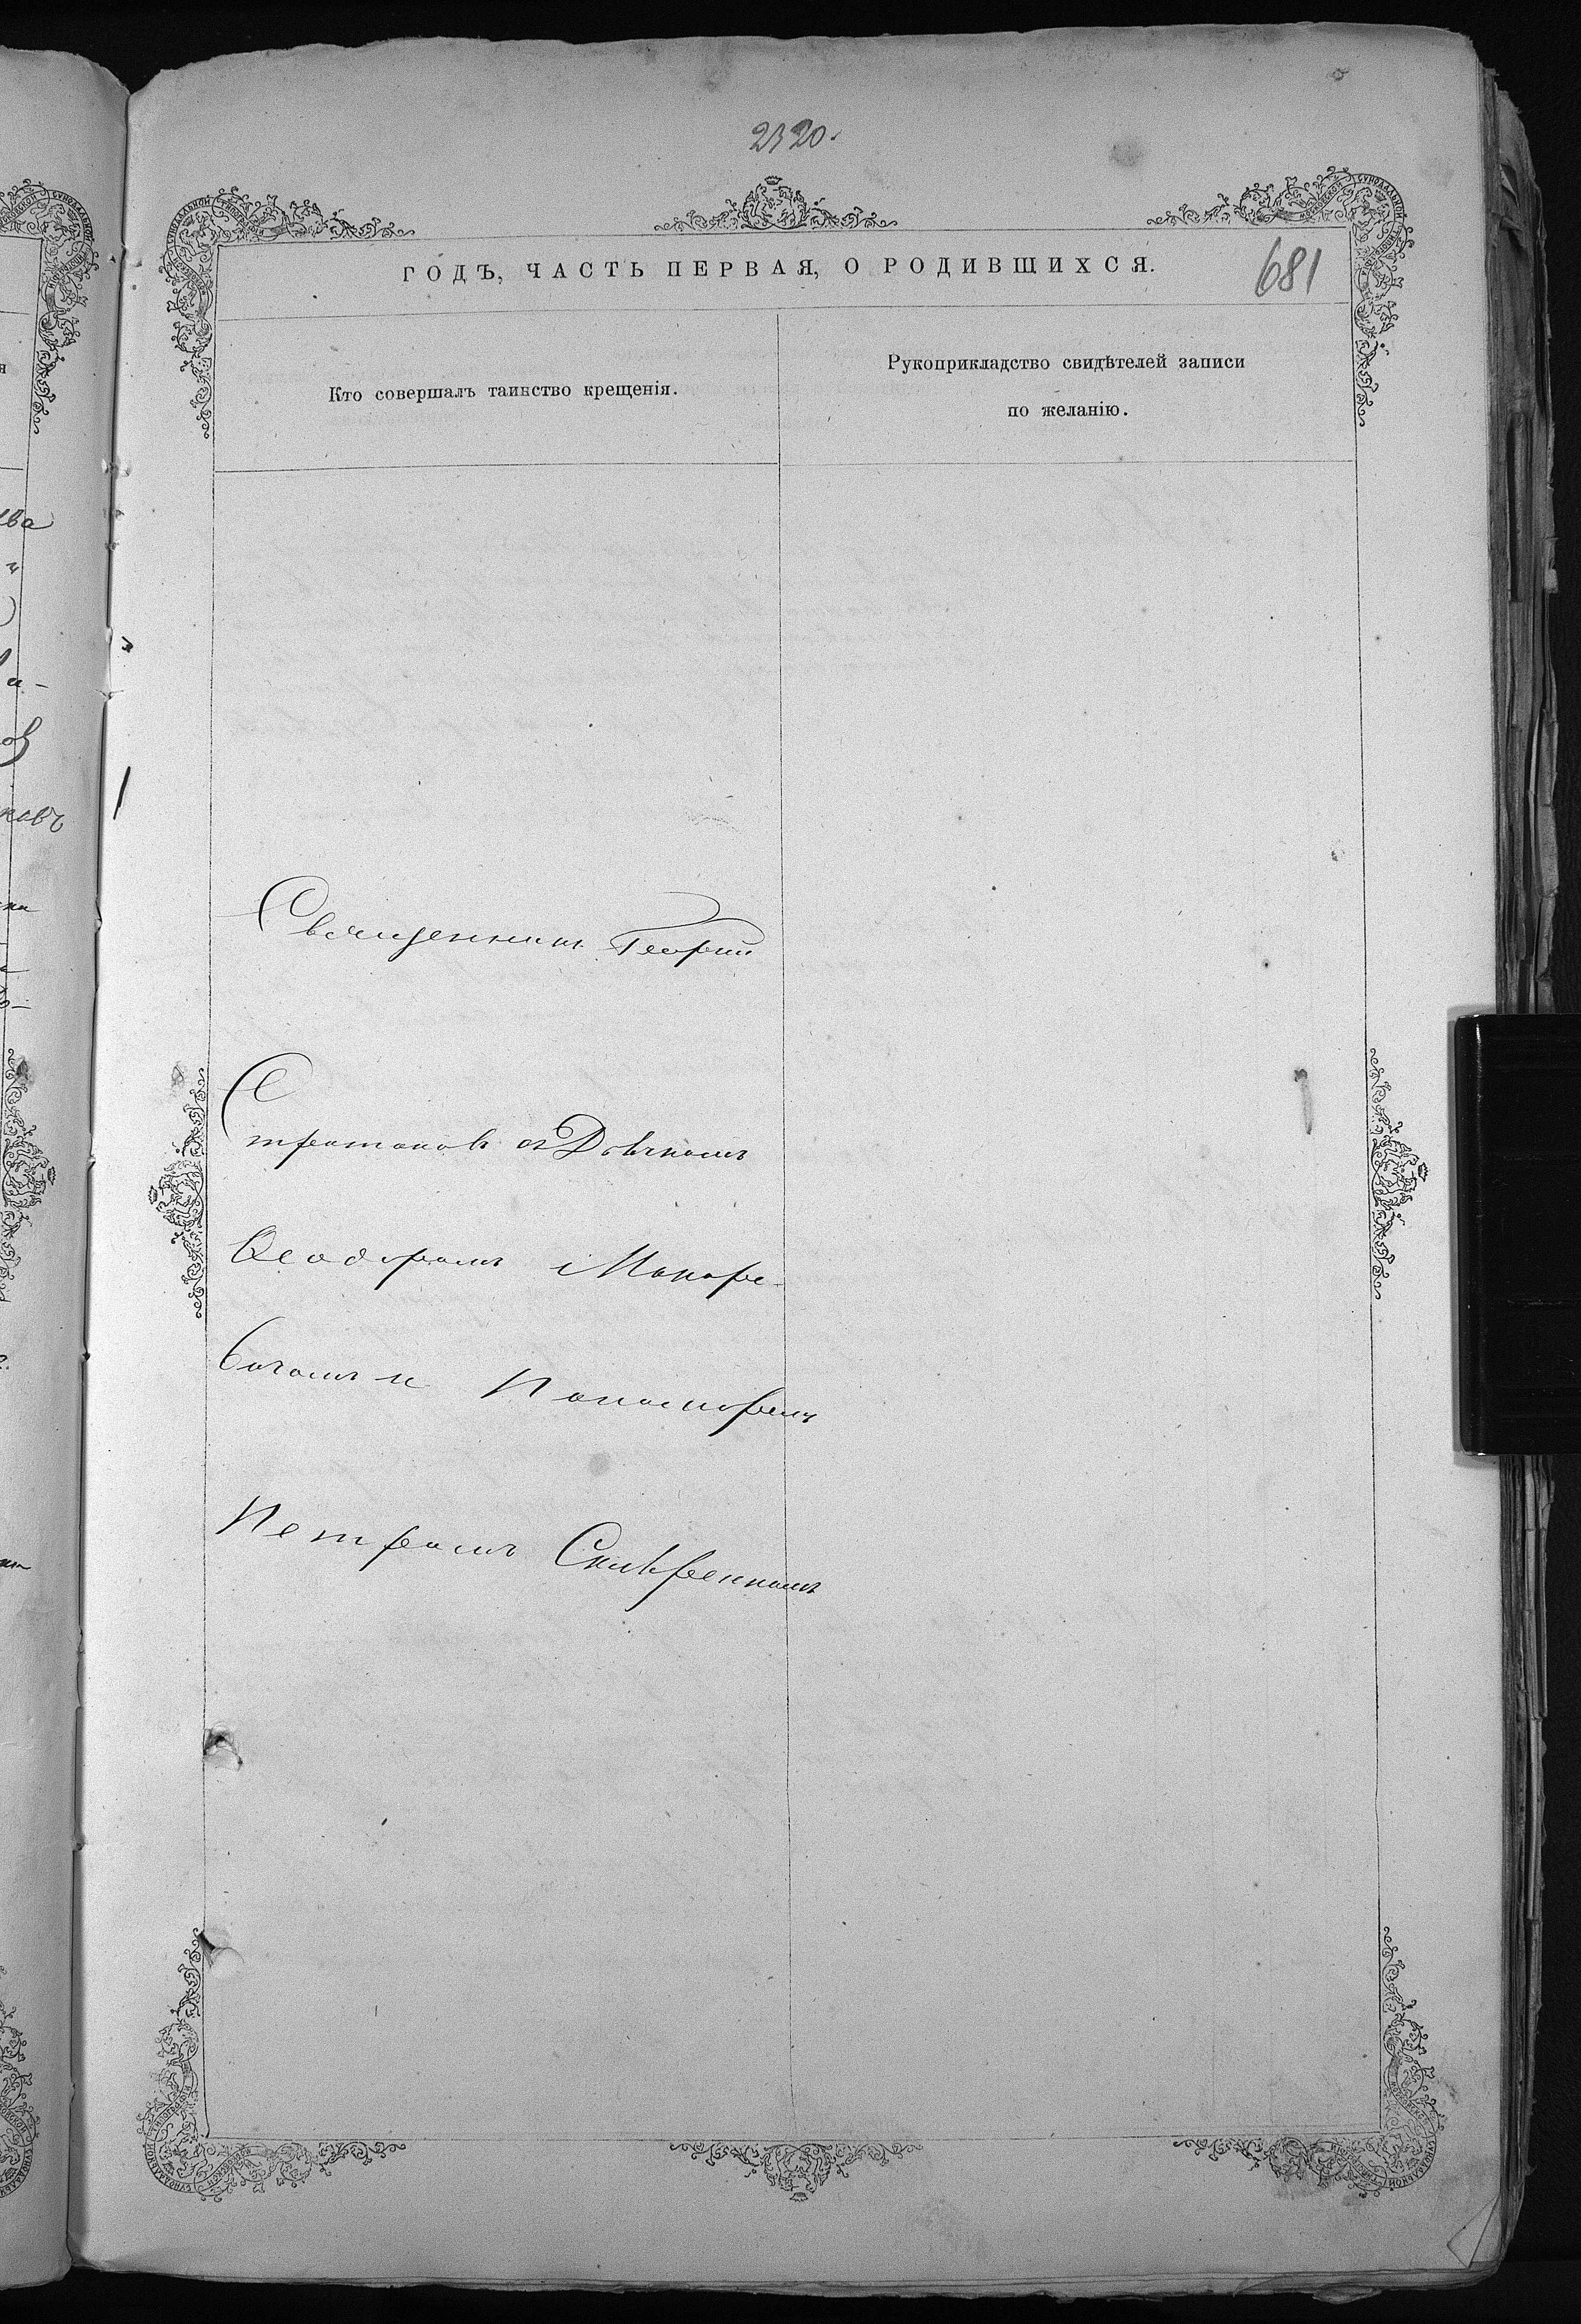 2320.
ГОДЪ, ЧАСТЬ ПЕРВАЯ, О РОДИВШИХСЯ.
681
Кто совершалъ таинство крещенія.
Рукоприкладство свидѣтелей записи
по желанію.
Священникъ Георгій
Стратоновъ съ Дьякомъ
Ѳеодоромъ Макаре-
вичомъ и Пономаремъ
Петромъ